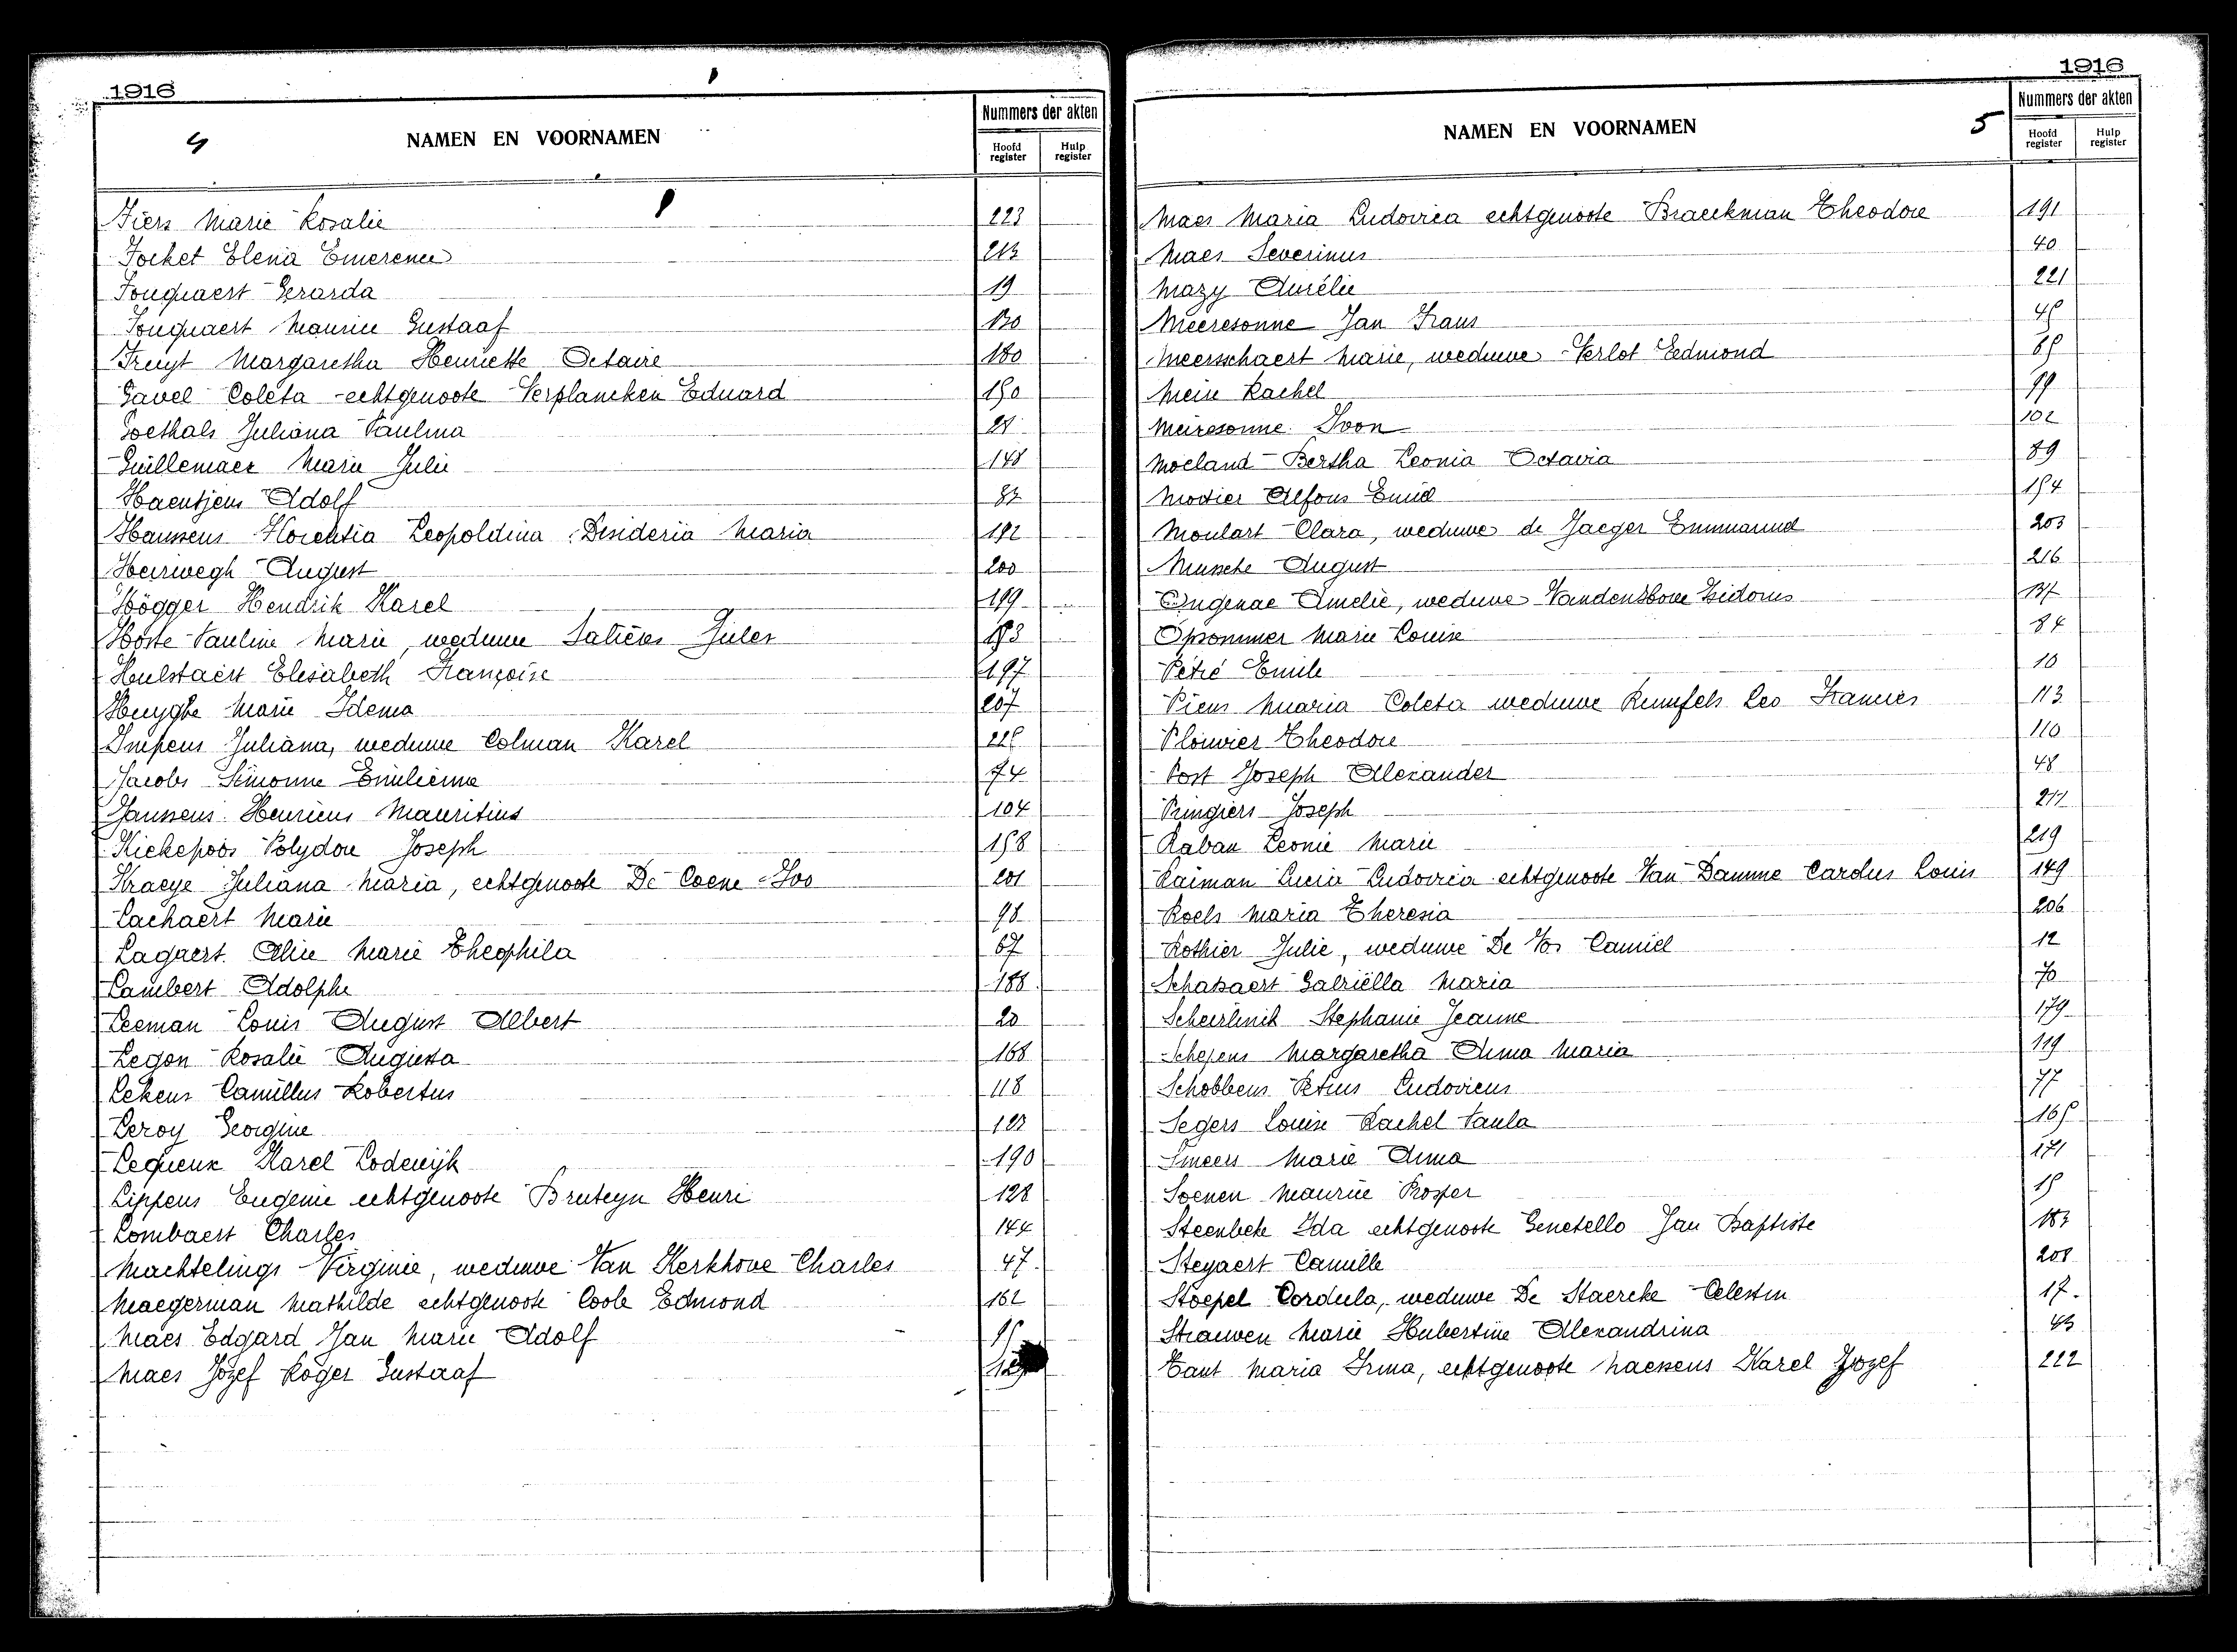 1916
4
NAMEN EN VOORNAMEN
Nummers der akten
Hoofd register
Hulp register
Fiers Marie Rosalie 223
Focket Elena Emerence
Fouquaert Gerarda 19
Fouquaert Maurice Gustaaf 130
Freyt Margaretha Henriette Octavie 180
Gavel Coleta echtgenoote Verplancken Eduard 150
Goethals Juliana Paulina
Guillemaer Marie Julie 148
Haentjens Adolf
Hanssens Florentia Leopoldina Desideria Maria 192
Heirwegh August 200
Högger Hendrik Karel 199
Hoste Pauline Marie, weduwe Jules
Hulstaert Elisabeth Françoise 197
Huyghe Marie Idema 207
Impens Juliana, weduwe Colman Karel 225
Jacobs Simonne Emilienne 74
Janssens Henricus Mauritius 104
Kiekepoos Polydore Joseph 158
Kraeye Juliana Maria, echtgenoote De Coene Ivo 201
Lachaert Marie 98
Lagaert Alice Marie Theophila 67
Lambert Adolphe 188
Leeman Louis August Albert 20
Legon Rosalie Augusta 168
Lekens Camillus Robertus 118
Leroy Georgine
Lequeux Karel Lodewijk 190
Lippens Eugenie echtgenoote Bruteyn Henri 128
Lombaert Charles 144
Machtelings Virginie, weduwe Van Kerkhove Charles 47
Maegerman Mathilde echtgenoote Coole Edmond 162
Maes Edgard Jan Marie Adolf
Maes Jozef Roger Gustaaf
1916
NAMEN EN VOORNAMEN
5
Nummers der akten
Hoofd register
Hulp register
Maes Maria Ludovica echtgenoote Braeckman Theodore 191
Maes Severinus 40
Mazy Aurélie 221
Meeresonne Jan Frans 45
Meersschaert Marie, weduwe Verlot Edmond
Meire Rachel 99
Meiresonne Ivon 102
Moeland Bertha Leonia Octavia 89
Modier Alfons Emiel 154
Moulart Clara, weduwe de Jaeger Emmanuel 203
Mussche August 216
Ongenae Amelie, weduwe Isidorus 137
Opsommer Marie Louise 84
Pétré Emile 10
Piens Maria Coleta weduwe Leo Francies 113
Plouvier Theodore 110
Post Joseph Alexander 48
Pringiers Joseph
Raban Leonie Marie 219
Raiman Lucia Ludovica echtgenoote Van Damme Carolus Louis 149
Roels Maria Theresia 206
Rothier Julie, weduwe De Vos Camiel 12
Schatsaert Gabriëlla Maria 70
Scheirlinck Stephanie Jeanne 179
Schepens Margaretha Anna Maria 119
Schobbens Petrus Ludovicus 77
Segers Louise Rachel Paula 165
Smeers Marie Anna 171
Soenen Maurice Prosper 15
Steenbeke Ida echtgenoote Genetello Jan Baptiste
Steyaert Camille 208
Stoepel Cordula, weduwe De Staercke Celestin 17.
Strauwen Marie Hubertine Alexandrina 43
Tant Maria Irma, echtgenoote Naessens Karel Jozef 222